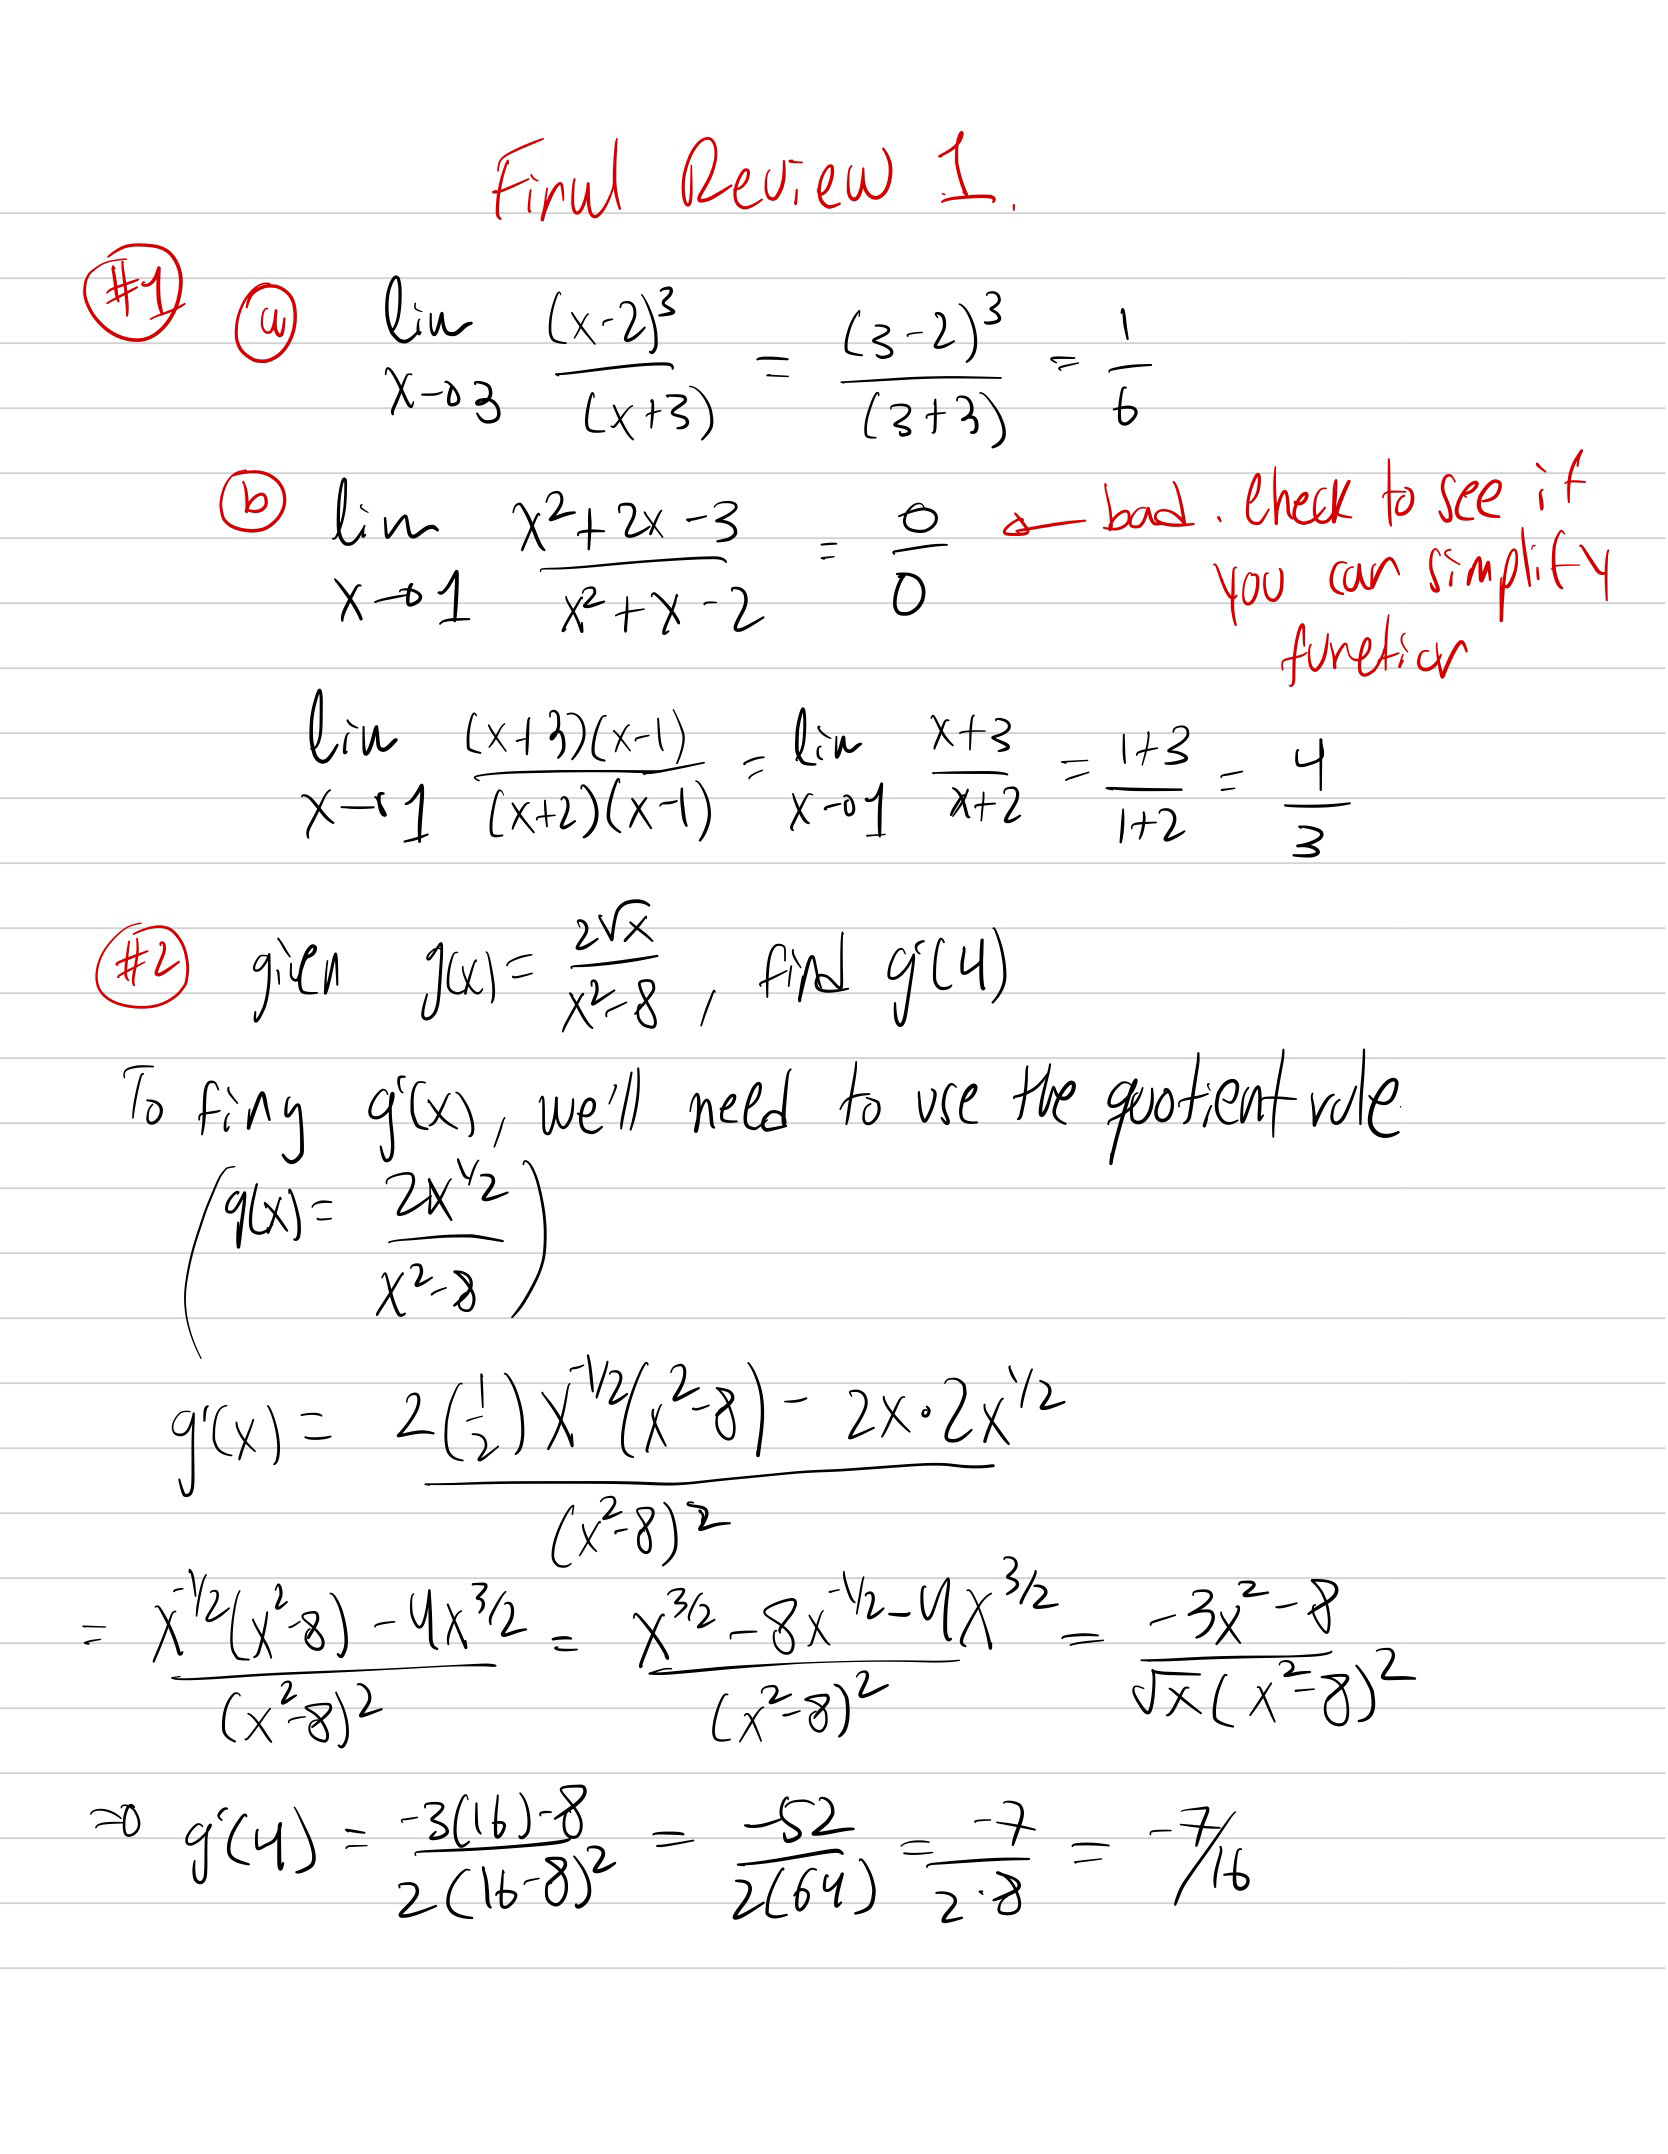 Final Review 1.
#1 (a) lim x→3 (x-2)³/(x+3) = (3-2)³/(3+3) = 1/6
(b) lim x→1 (x²+2x-3)/(x²+x-2) = 0/0 ← bad. Check to see if
you can simplify
function
lim x→1 (x+3)(x-1)/(x+2)(x-1) = lim x→1 (x+3)/(x+2) = (1+3)/(1+2) = 4/3
#2 given g(x) = 2√x/(x²-8), find g'(4)
To fing g'(x), we'll need to use the quotient rule
(g(x) = 2x^(1/2)/(x²-8))
g'(x) = (2(1/2)x^(-1/2)(x²-8) - 2x·2x^(1/2))/(x²-8)²
= (x^(-1/2)(x²-8) - 4x^(3/2))/(x²-8)² = (x^(3/2) - 8x^(-1/2) - 4x^(3/2))/(x²-8)² = (-3x²-8)/(√x(x²-8)²)
⇒ g'(4) = (-3(16)-8)/(2(16-8)²) = -52/(2(64)) = -7/(2·8) = -7/16